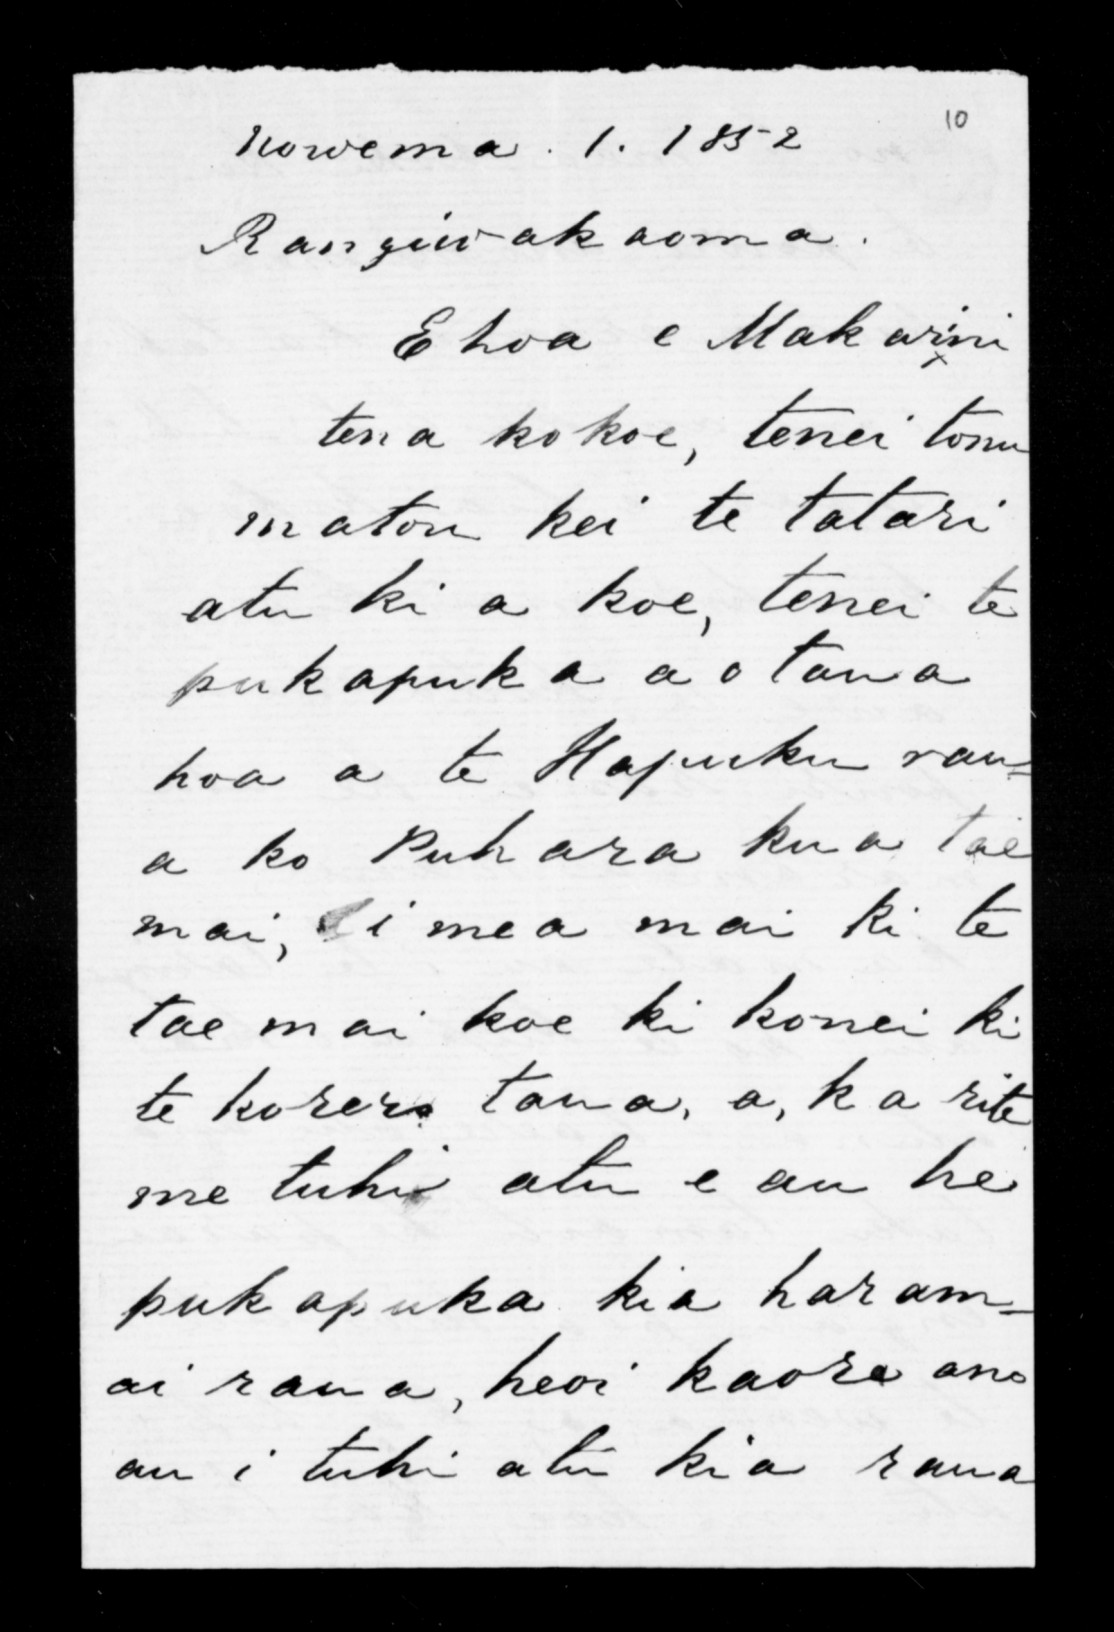 10
Nowema. 1. 1852
Rangiwakaoma.
E hoa e Makarini
tena ko koe, tenei tonu
matou kei te tatari
atu ki a koe, tenei te
pukapuka a o taua
hoa a te Hapuku rau-
a ko Puhara kua tae
mai, i mea mai ki te
tae mai koe ki konei ki
te korero taua, a, ka rite
me tuhi atu e au he
pukapuka kia haram-
ai raua, heoi kaore ano
au i tuhi atu kia raua